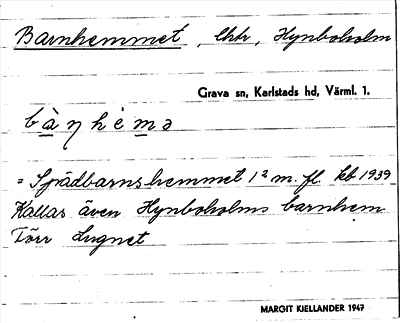 Barnhemmet, lht, Hynboholm
Grava sn, Karlstads hd, Värml. 1.
bàŋhèmə
= Spädbarnshemmet 1² m. fl kt 1939
Kallas även Hynboholms barnhem
Torr Lugnet
MARGIT KJELLANDER 1947